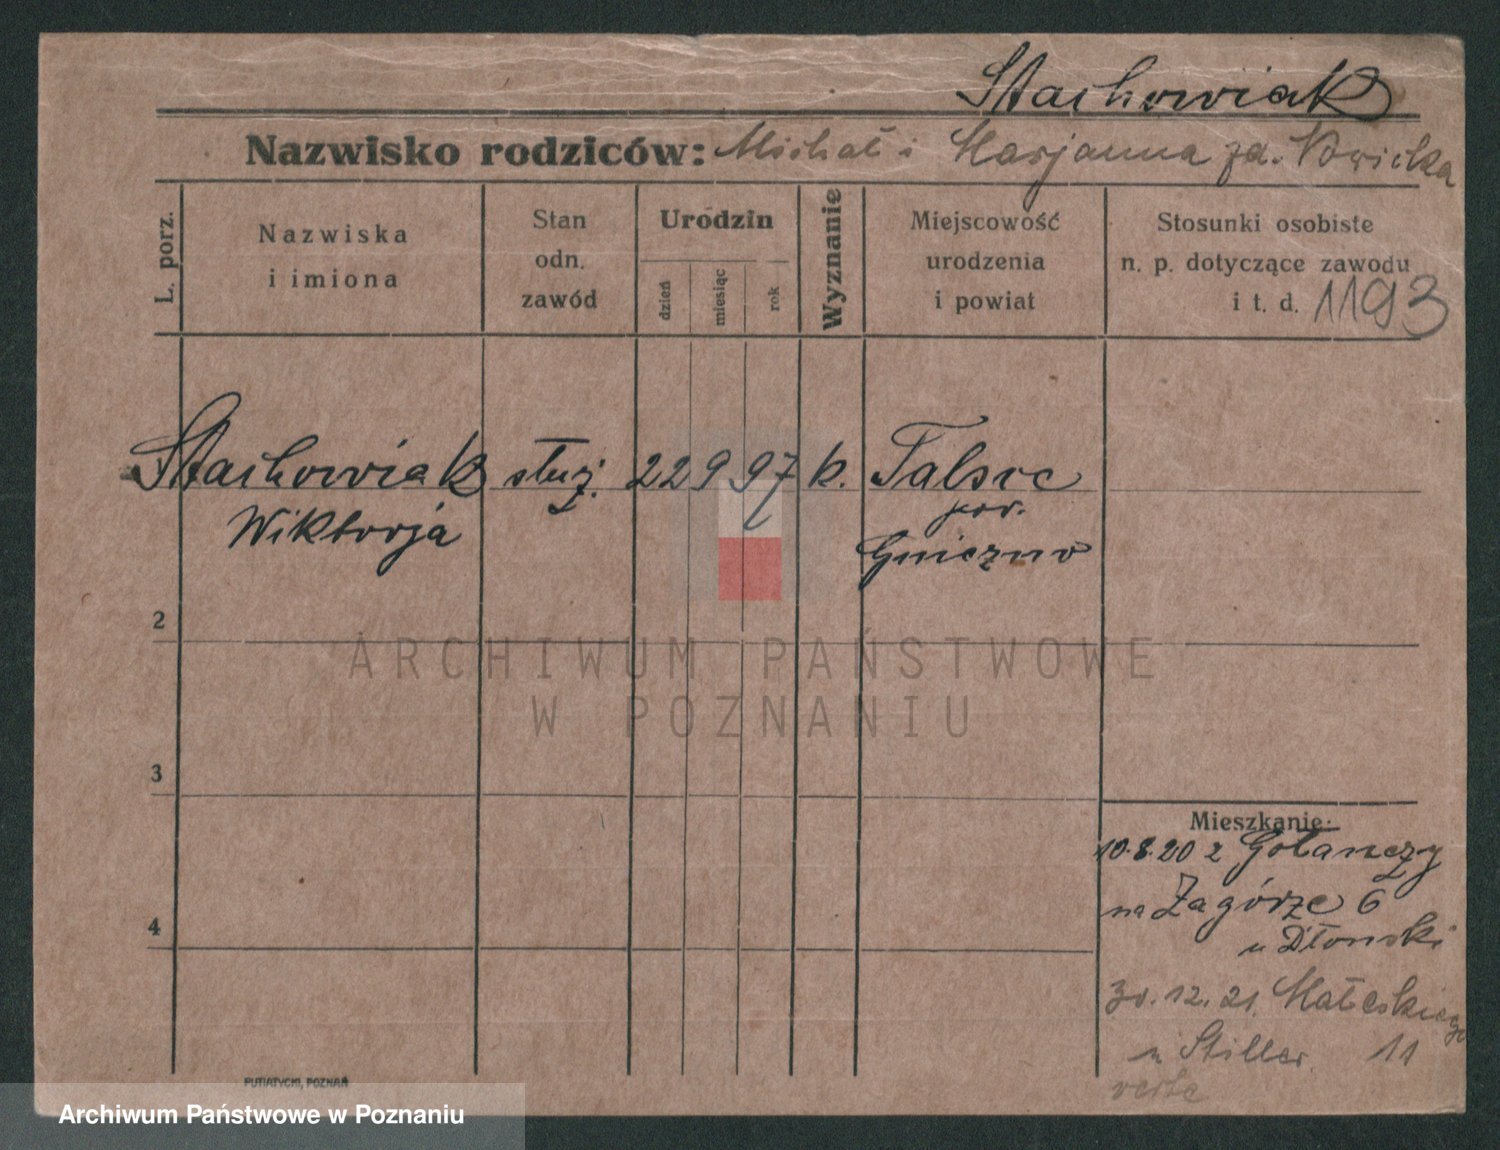 Stachowiak
Nazwisko rodziców: Michał i Marjanna zd.
L. porz.
Nazwiska
i imiona
Stan
odn.
zawód
Urodzin
dzień
miesiąc
rok
Wyznanie
Miejscowość
urodzenia
i powiat
Stosunki osobiste
n. p. dotyczące zawodu
i t. d. 1193
Stachowiak służ. 22 9 97 k.
Wiktorja
pow.
Gniezno
2
ARCHIWUM PAŃSTWOWE
W POZNANIU
3
Mieszkanie:
10.8.20 z Gołanczy
na Zagórze 6
u Dłonski
4
30.12.21. Małeckiego
u Stiller 11
PUTIATYCKI, POZNAŃ
Archiwum Państwowe w Poznaniu